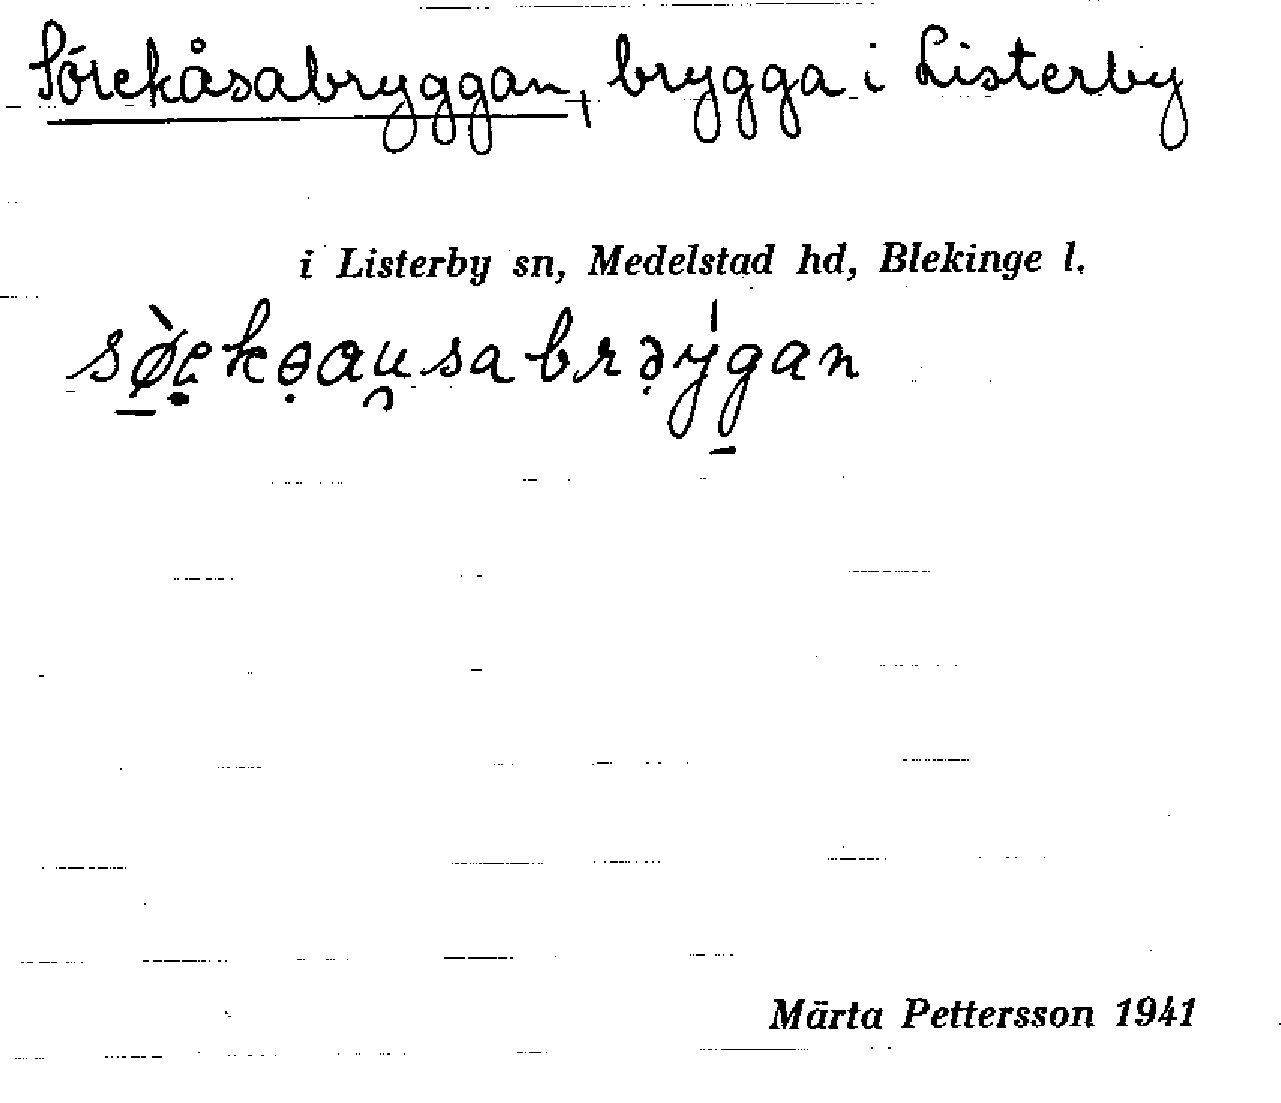 Sörekåsabryggan, brygga i Listerby
i Listerby sn, Medelstad hd, Blekinge l.
Märta Pettersson 1941